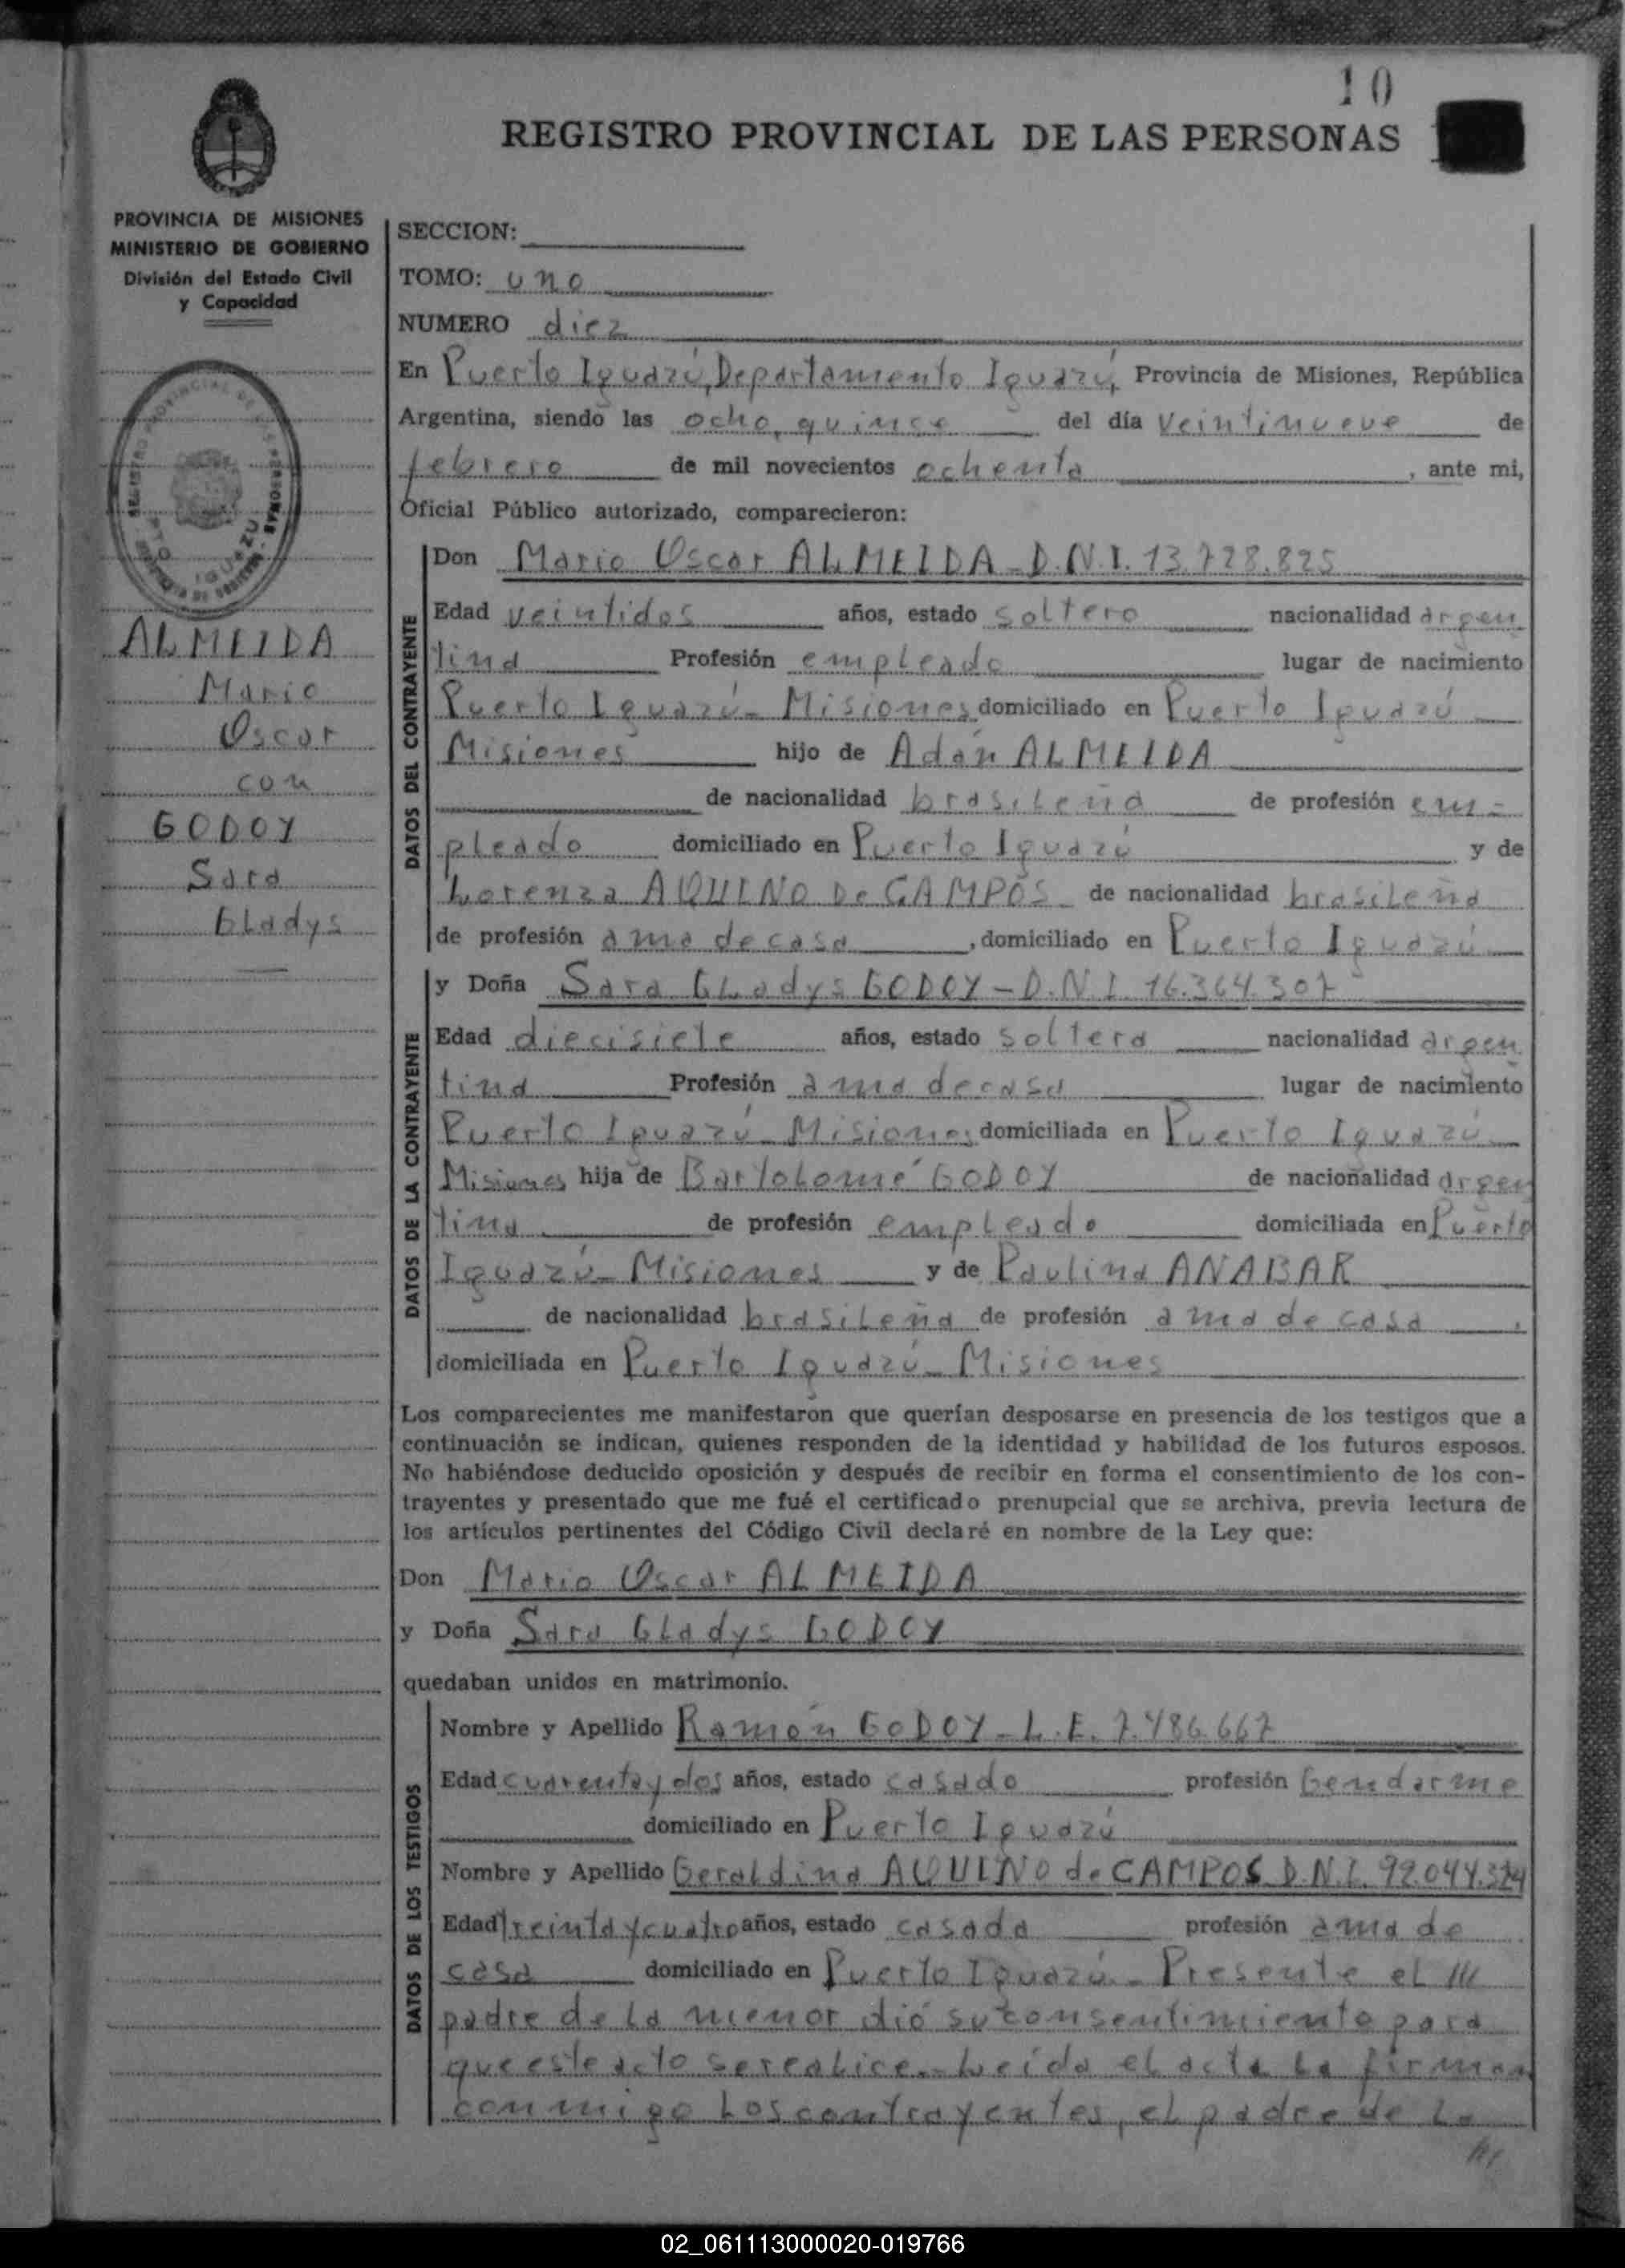 10
REGISTRO PROVINCIAL DE LAS PERSONAS
PROVINCIA DE MISIONES
MINISTERIO DE GOBIERNO
División del Estado Civil
y Capacidad
ALMEIDA
Mario
Oscar
con
GODOY
Sara
Gladys
SECCION:
TOMO: uno
NUMERO diez
En Puerto Iguazú, Departamento Iguazú, Provincia de Misiones, República
Argentina, siendo las ocho, quince del día veintinueve de
febrero de mil novecientos ochenta, ante mi,
Oficial Público autorizado, comparecieron:
DATOS DEL CONTRAYENTE
Don Mario Oscar ALMEIDA - D.N.I. 13.728.825
Edad veintidos años, estado soltero nacionalidad argen
tina Profesión empleado lugar de nacimiento
Puerto Iguazú - Misiones domiciliado en Puerto Iguazú
Misiones hijo de Adán ALMEIDA
de nacionalidad brasileña de profesión em-
pleado domiciliado en Puerto Iguazú y de
Lorenza AQUINO De CAMPOS de nacionalidad brasileña
de profesión ama de casa, domiciliado en Puerto Iguazú
DATOS DE LA CONTRAYENTE
y Doña Sara Gladys GODOY - D.N.I. 16.364.307
Edad diecisiete años, estado soltera nacionalidad argen
tina Profesión ama de casa lugar de nacimiento
Puerto Iguazú - Misiones domiciliada en Puerto Iguazú
Misiones hija de Bartolomé GODOY de nacionalidad argen
tina de profesión empleado domiciliada en Puerto
Iguazú - Misiones y de Paulina ANABAR
de nacionalidad brasileña de profesión ama de casa,
domiciliada en Puerto Iguazú - Misiones
Los comparecientes me manifestaron que querían desposarse en presencia de los testigos que a
continuación se indican, quienes responden de la identidad y habilidad de los futuros esposos.
No habiéndose deducido oposición y después de recibir en forma el consentimiento de los con-
trayentes y presentado que me fué el certificado prenupcial que se archiva, previa lectura de
los artículos pertinentes del Código Civil declaré en nombre de la Ley que:
Don Mario Oscar ALMEIDA
y Doña Sara Gladys GODOY
quedaban unidos en matrimonio.
DATOS DE LOS TESTIGOS
Nombre y Apellido Ramón GODOY - L.E. 7.486.667
Edad cuarenta y dos años, estado casado profesión Gendarme
domiciliado en Puerto Iguazú
Nombre y Apellido Geraldina AQUINO de CAMPOS D.N.I. 92.044.
Edad treinta y cuatro años, estado casada profesión ama de
casa domiciliado en Puerto Iguazú - Presente el
padre de la menor dió su consentimiento para
que este acto se realice. - Leída el acta la firman
conmigo los contrayentes, el padre de la
02_061113000020-019766